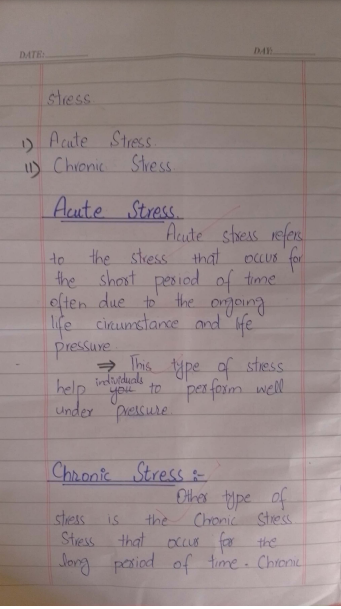 DATE:
DAY
stress
I) Acute Stress
II) Chronic Stress
Acute Stress.
Acute stress refers
to the stress that occur for
the short period of time
often due to the ongoing
life circumstance and life
pressure
⇒ This type of stress
help individuals you to perform well
under pressure
Chronic Stress :-
Other type of
stress is the Chronic Stress
Stress that occur for the
long period of time. Chronic